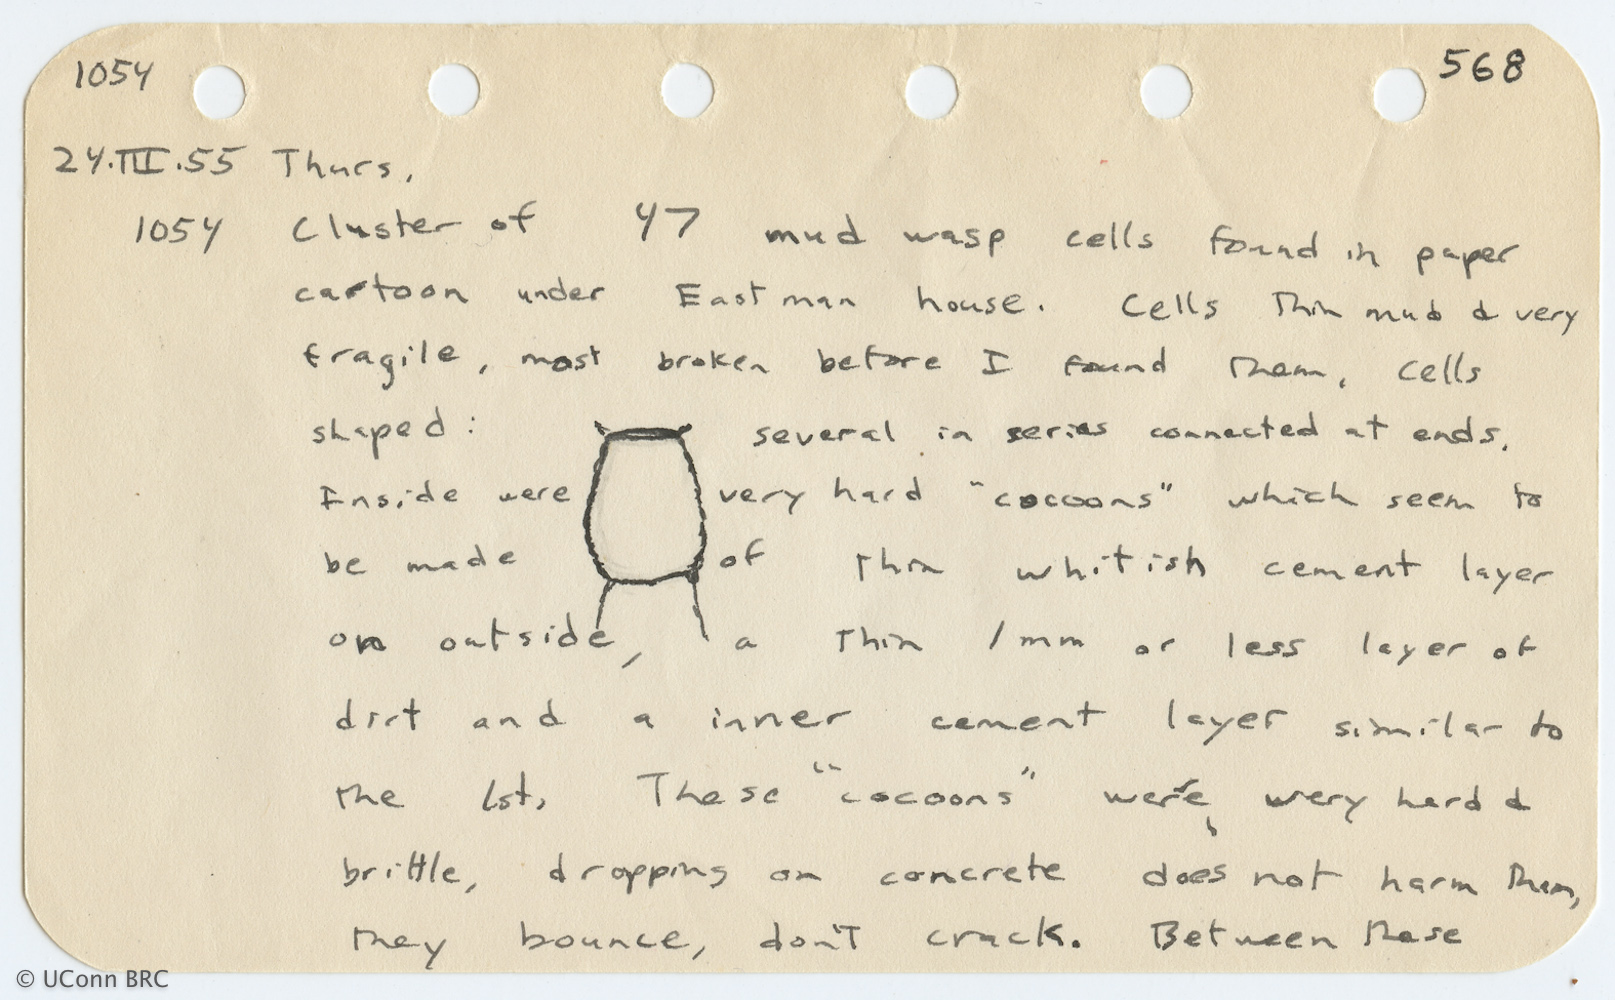 1054 568
24.III.55 Thurs.
1054 Cluster of 47 mud wasp cells found in paper
cartoon under Eastman house. Cells thin mud & very
fragile, most broken before I found them. Cells
shaped: several in series connected at ends.
Inside were very hard "cocoons" which seem to
be made of thin whitish cement layer
on outside, a thin 1mm or less layer of
dirt and a inner cement layer similar to
the 1st. These "cocoons" were, very hard &
brittle, dropping on concrete does not harm them,
they bounce, don't crack. Between these
© UConn BRC